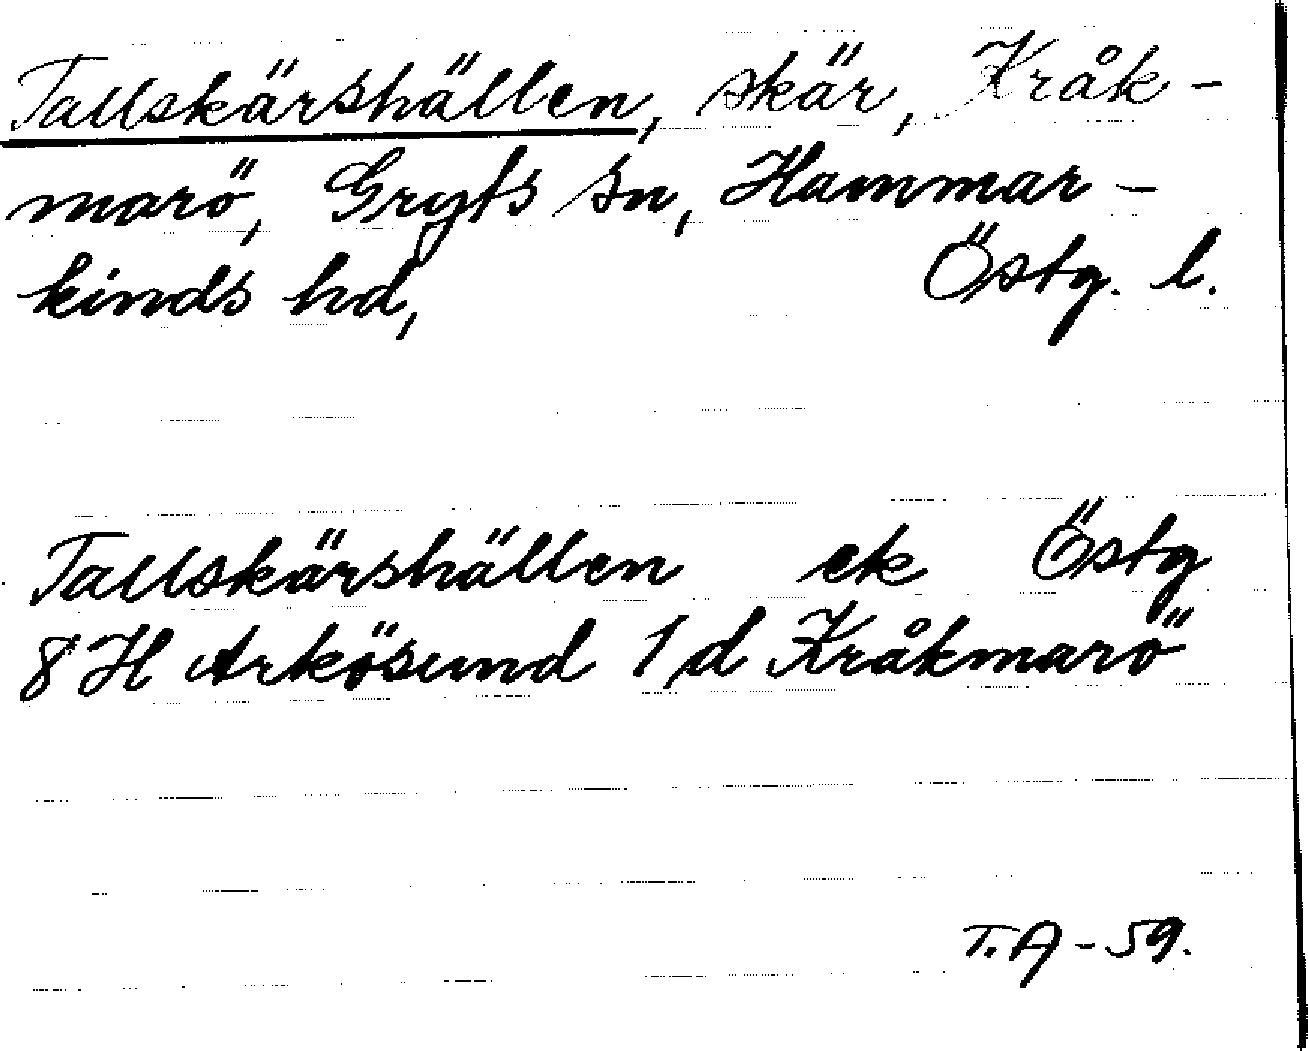 Tallskärshällen, skär, Kråk-
marö, Gryts sn, Hammar-
kinds hd, Östg. l.
Tallskärshällen ek Östg
8 H Arkösund 1 d Kråkmarö
T.A-59.